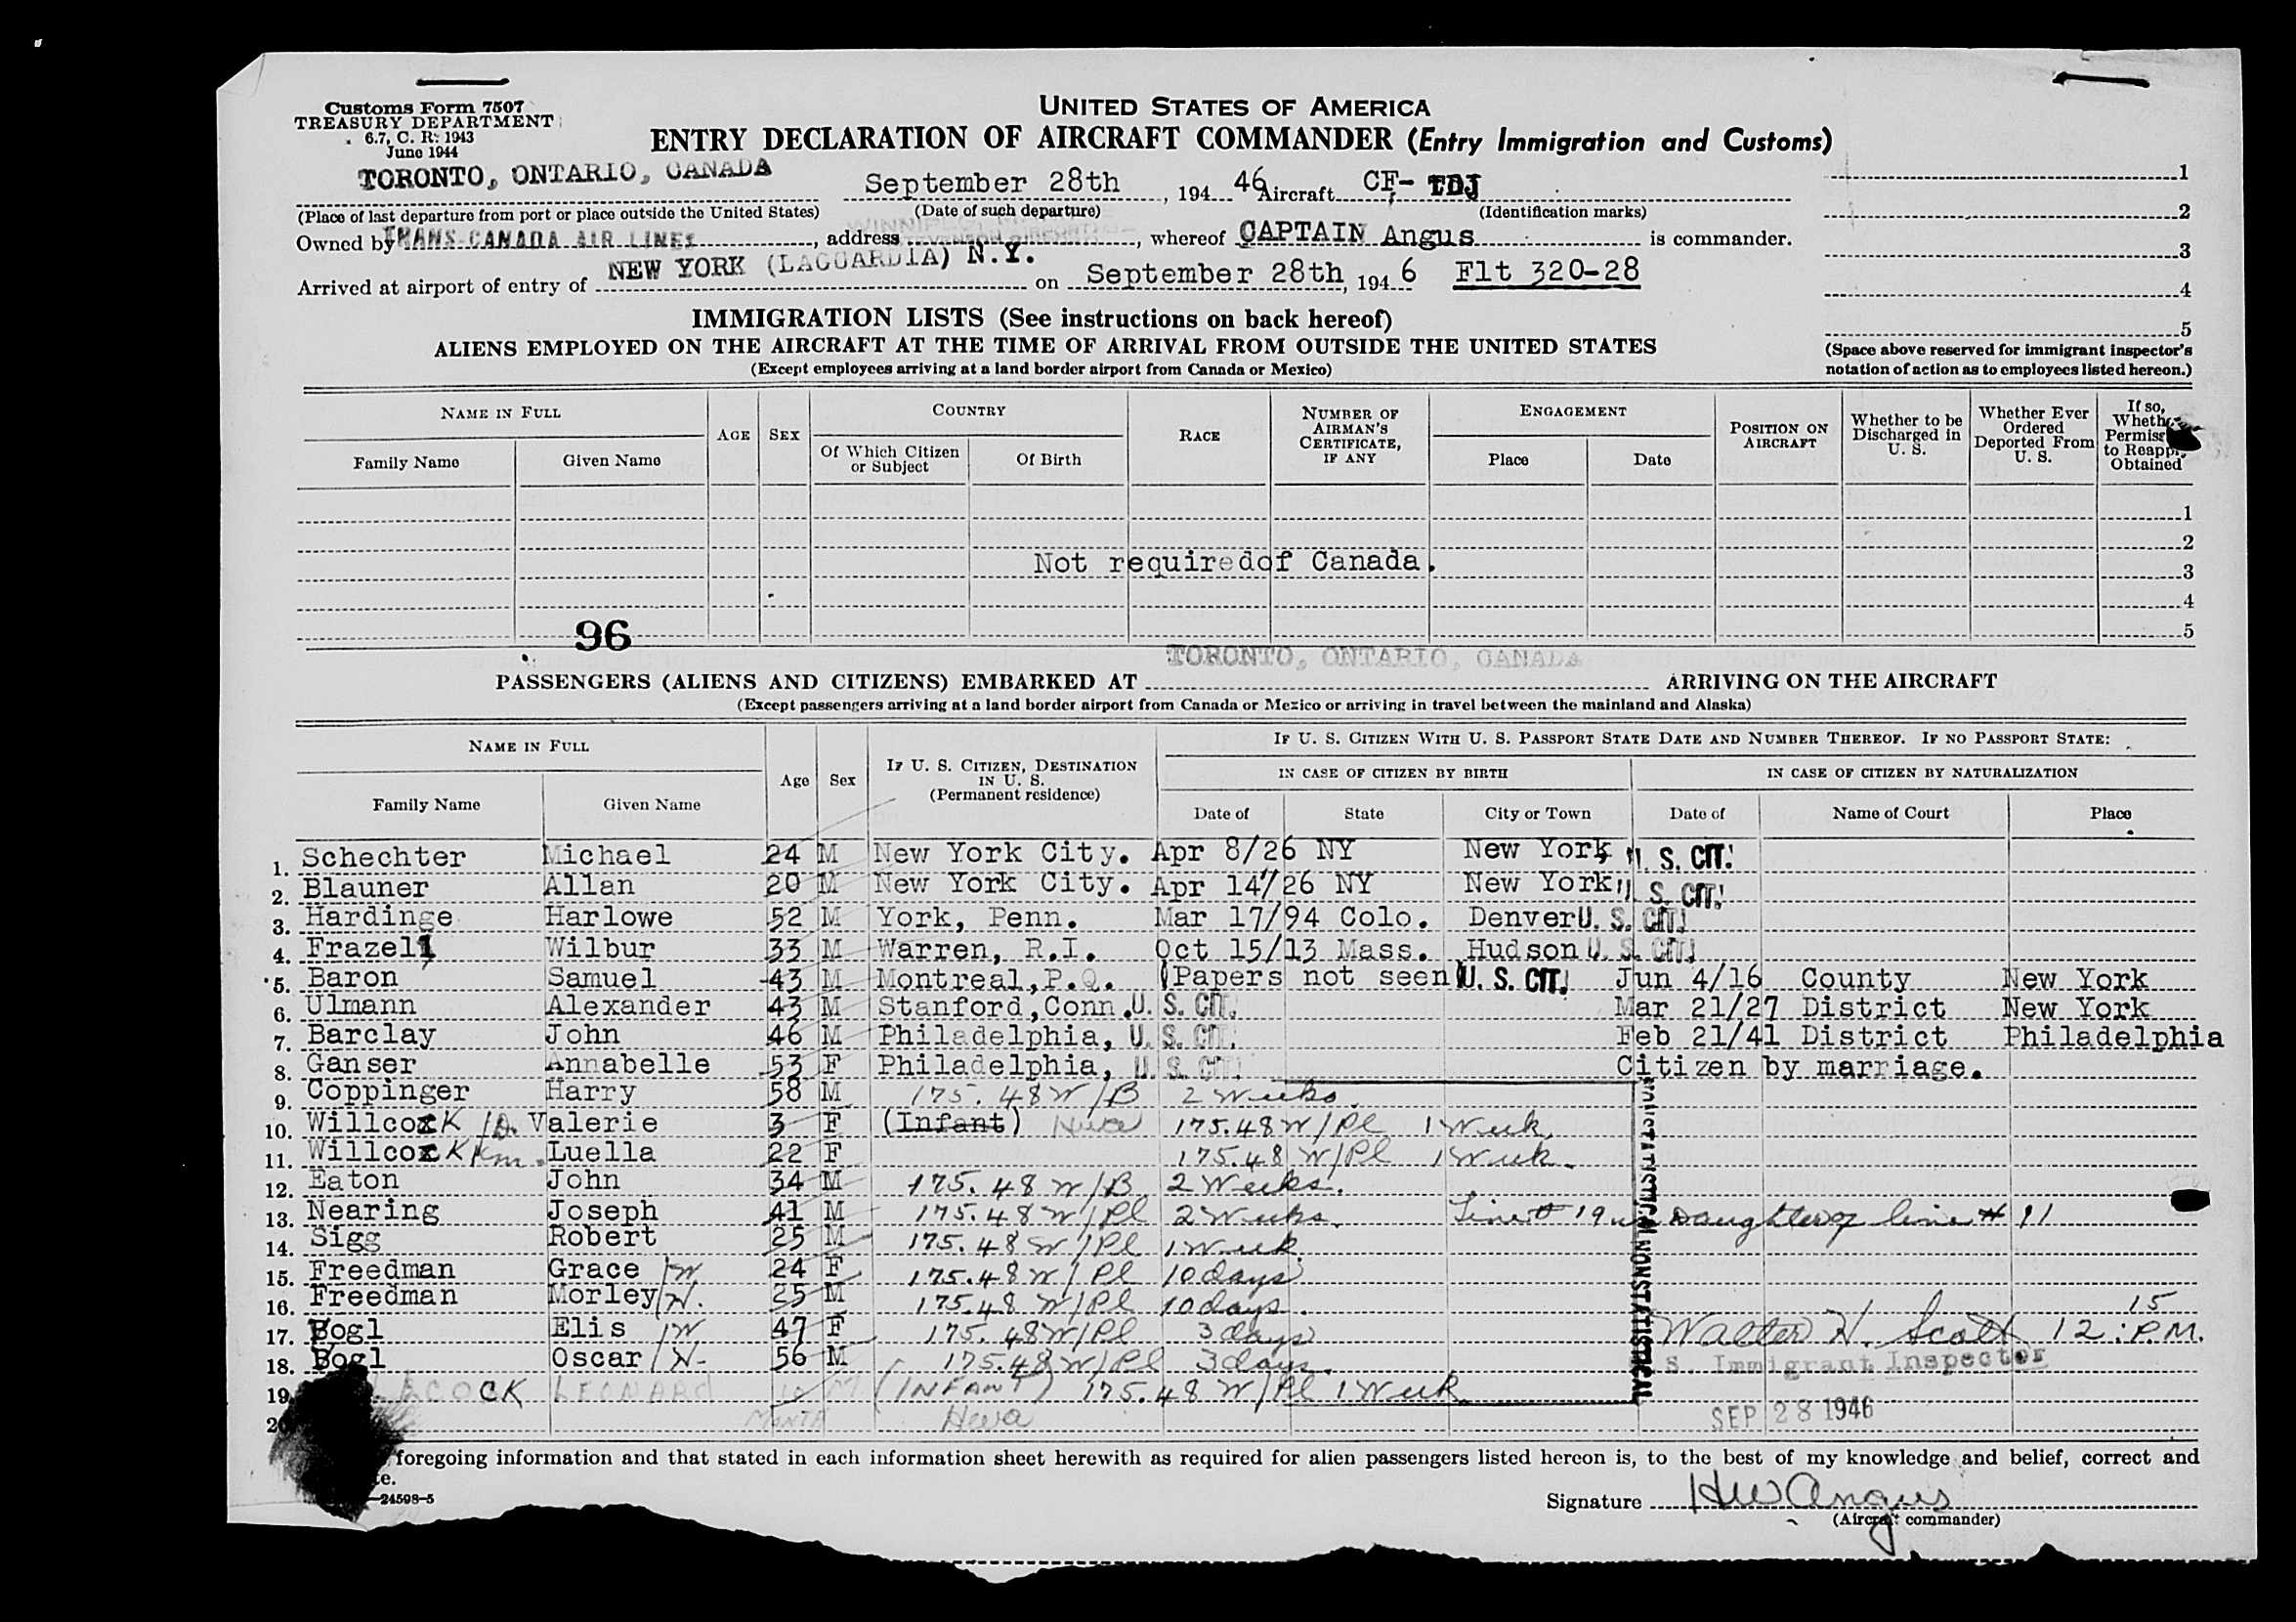 Customs Form 7507
TREASURY DEPARTMENT
6.7, C. R. 1943
June 1944
UNITED STATES OF AMERICA
ENTRY DECLARATION OF AIRCRAFT COMMANDER (Entry Immigration and Customs)
TORONTO, ONTARIO, CANADA September 28th, 194 46 Aircraft CF- TDJ
(Place of last departure from port or place outside the United States) (Date of such departure) (Identification marks)
Owned by TRANS-CANADA AIR LINES, address, whereof CAPTAIN Angus is commander.
Arrived at airport of entry of NEW YORK (LAGUARDIA) N.Y. on September 28th, 194 6 Flt 320-28
1
2
3
4
5
(Space above reserved for immigrant inspector's
notation of action as to employees listed hereon.)
IMMIGRATION LISTS (See instructions on back hereof)
ALIENS EMPLOYED ON THE AIRCRAFT AT THE TIME OF ARRIVAL FROM OUTSIDE THE UNITED STATES
(Except employees arriving at a land border airport from Canada or Mexico)
NAME IN FULL
Family Name Given Name
AGE SEX
COUNTRY
Of Which Citizen or Subject Of Birth
RACE
NUMBER OF AIRMAN'S CERTIFICATE, IF ANY
ENGAGEMENT
Place Date
POSITION ON AIRCRAFT
Whether to be Discharged in U. S.
Whether Ever Ordered Deported From U. S.
If so, to Obtained
1
2
Not requiredof Canada.
3
4
5
96
TORONTO, ONTARIO, CANADA
PASSENGERS (ALIENS AND CITIZENS) EMBARKED AT ARRIVING ON THE AIRCRAFT
(Except passengers arriving at a land border airport from Canada or Mexico or arriving in travel between the mainland and Alaska)
NAME IN FULL
Family Name Given Name
Age Sex
IF U. S. CITIZEN, DESTINATION IN U. S. (Permanent residence)
IF U. S. CITIZEN WITH U. S. PASSPORT STATE DATE AND NUMBER THEREOF. IF NO PASSPORT STATE:
IN CASE OF CITIZEN BY BIRTH IN CASE OF CITIZEN BY NATURALIZATION
Date of State City or Town Date of Name of Court Place
1. Schechter Michael 24 M New York City. Apr 8/26 NY New York, U. S. CIT.
2. Blauner Allan 20 M New York City. Apr 14/26 NY New York, U. S. CIT.
3. Hardinge Harlowe 52 M York, Penn. Mar 17/94 Colo. Denver U. S. CIT.
4. Frazell Wilbur 33 M Warren, R.I. Oct 15/13 Mass. Hudson U. S. CIT.
5. Baron Samuel 43 M Montreal,P.Q. (Papers not seen) U. S. CIT. Jun 4/16 County New York
6. Ulmann Alexander 43 M Stanford,Conn. U. S. CIT. Mar 21/27 District New York
7. Barclay John 46 M Philadelphia, U. S. CIT. Feb 21/41 District Philadelphia
8. Ganser Annabelle 53 F Philadelphia, U. S. CIT. Citizen by marriage.
9. Coppinger Harry 58 M 175.48 W/B 2 Weeks.
10. Willcock /D. Valerie 3 F (Infant) 175.48 W/Pl 1 Week.
11. Willcock Luella 22 F 175.48 W/Pl 1 Week.
12. Eaton John 34 M 175.48 W/B 2 Weeks.
13. Nearing Joseph 41 M 175.48 W/Pl 2 Weeks. Daughter of line # 11
14. Sigg Robert 25 M 175.48 W/Pl 1 Week.
15. Freedman Grace /W 24 F 175.48 W/Pl 10 days
16. Freedman Morley/H. 25 M 175.48 W/Pl 10 days.
17. Bogl Elis /W 47 F 175.48 W/Pl 3 days
18. Bogl Oscar /H- 56 M 175.48 W/Pl 3 days.
19. LEONARD M (INFANT) 175.48 W/Pl 1 Week
20. MONTH
NONSTATISTICAL
Walter H. Scott 12:15 P.M.
Immigrant Inspector
SEP 28 1946
foregoing information and that stated in each information sheet herewith as required for alien passengers listed hereon is, to the best of my knowledge and belief, correct and
24598-5
Signature HW Angus
(Aircraft commander)